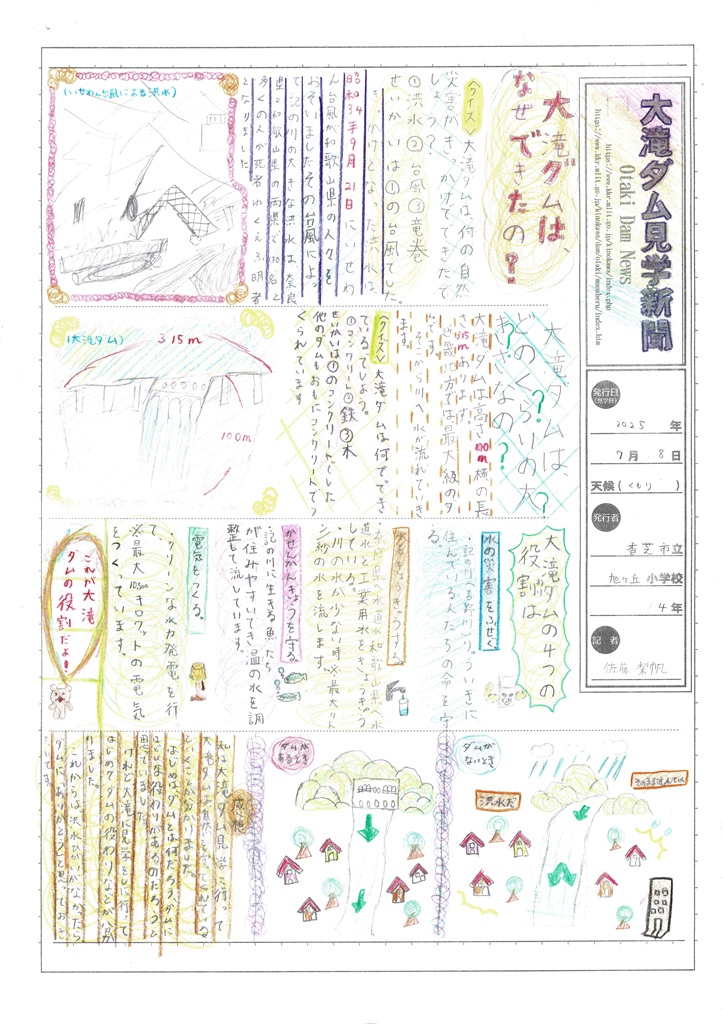 大滝ダム見学新聞
Otaki Dam News
https://www.kkr.mlit.go.jp/kinokawa/index.php
発行日
(見学日)
2025年
7月8日
天候(くもり)
発行者
香芝市立
旭ヶ丘小学校
4年
記者
佐藤梨帆
大滝ダムは、
なぜできたの?
〈クイズ〉大滝ダムは何の自然
災害がきっかけでできたで
しょう?
①洪水②台風③竜巻
せいかいは①の台風でした。
きっかけとなった洪水は
昭和34年9月21日にいせわ
ん台風が和歌山県の人々を
おそいました。その台風によっ
て記の川の大きな洪水は奈良
県と和歌山県の両県で
多くの人が死者ゆくえふ明者
となりました。
(いせわん台風による洪水)
大滝ダムは、
どのくらいの大
きさなの?
大滝ダムは高さ100m横の長
さ315mあります。
近畿地方では最大級のダ
ムです。
そこから川へ水が流れていき
ます。
〈クイズ〉大滝ダムは何でできて
いるでしょう。
①コンクリート②鉄③木
せいかいは①のコンクリートでした
他のダムもおもにコンクリートでつ
くられています。
(大滝ダム)
315m
100m
大滝ダムの4つの
役割は
水の災害をふせぐ
・記の川(吉野川)りゅういきに
住んでいる人たちの命を守
る。
水をきょうきゅうする。
・奈良県の水道水和歌山県の水
道水と工業用水をきょうきゅう
している。
・川の水が少ない時※最大
かせんかんきょうを守る。
・記の川に生きる魚たち
が住みやすいてき温の水を調
整して流しています。
電気をつくる。
クリーンな水力発電を行
て、
※最大10500キロワットの電気
をつくっています。
これが大滝
ダムの役割だよ!
ダムが
ないとき
そのまま流れていく
洪水だ
ダムが
あるとき
感想
私は大滝ダム見学に行って
大滝ダムは自然を守ってくれている
ということが分かりました。
はじめはダムとは何だろう、ダムに
はどんな役わりがあるのだろうと
思っていました。
けれど大滝に見学をしに行って
はじめてダムの役わりなどが分か
りました。
これからは洪水ひがいがなかったら
ダムにありがとうと思っておき